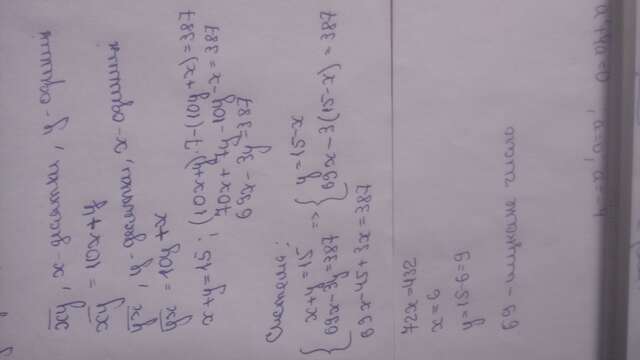 xy, x-десятки, y-одиниці
xy = 10x+y
yx, y-десятки, x-одиниці
yx = 10y+x
x+y=15 ; (10x+y)·7-(10y+x)=387
70x+7y-10y-x=387
69x-3y=387
Система:
{ x+y=15 => { y=15-x
69x-3y=387 69x-3(15-x)=387
69x-45+3x=387
72x=432
x=6
y=15-6=9
69-шукане число